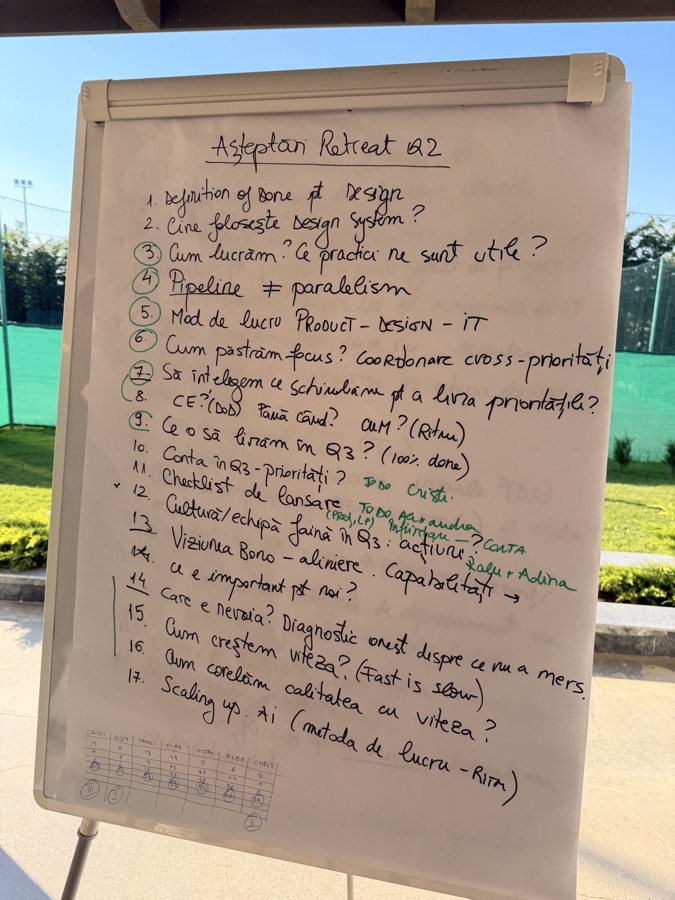 Așteptări Retreat Q2
1. Definition of Done pt Design
2. Cine folosește Design System?
3. Cum lucrăm? Ce practici ne sunt utile?
4. Pipeline ≠ paralelism
5. Mod de lucru PRODUCT - DESIGN - IT
6. Cum păstrăm focus? Coordonare cross-priorități
7. Să înțelegem ce schimbăm pt a livra prioritățile?
8. CE? (DoD) Până când? CUM? (Ritm)
9. Ce o să livrăm în Q3? (100% done)
10. Conta în Q3 - priorități? TO DO Cristi.
11. Checklist de lansare TO DO Alexandra
12. Cultură/echipă faină în Q3: acțiuni? CONTA
13. Viziunea Bono - aliniere. Capabilități → Ralu + Adina
ce e important pt noi?
14. Care e nevoia? Diagnostic onest despre ce nu a mers.
15. Cum creștem viteza? (Fast is slow)
16. Cum corelăm calitatea cu viteza?
17. Scaling up. Ai (metoda de lucru - Ritm)
CRISTI
ALEX CHRIS